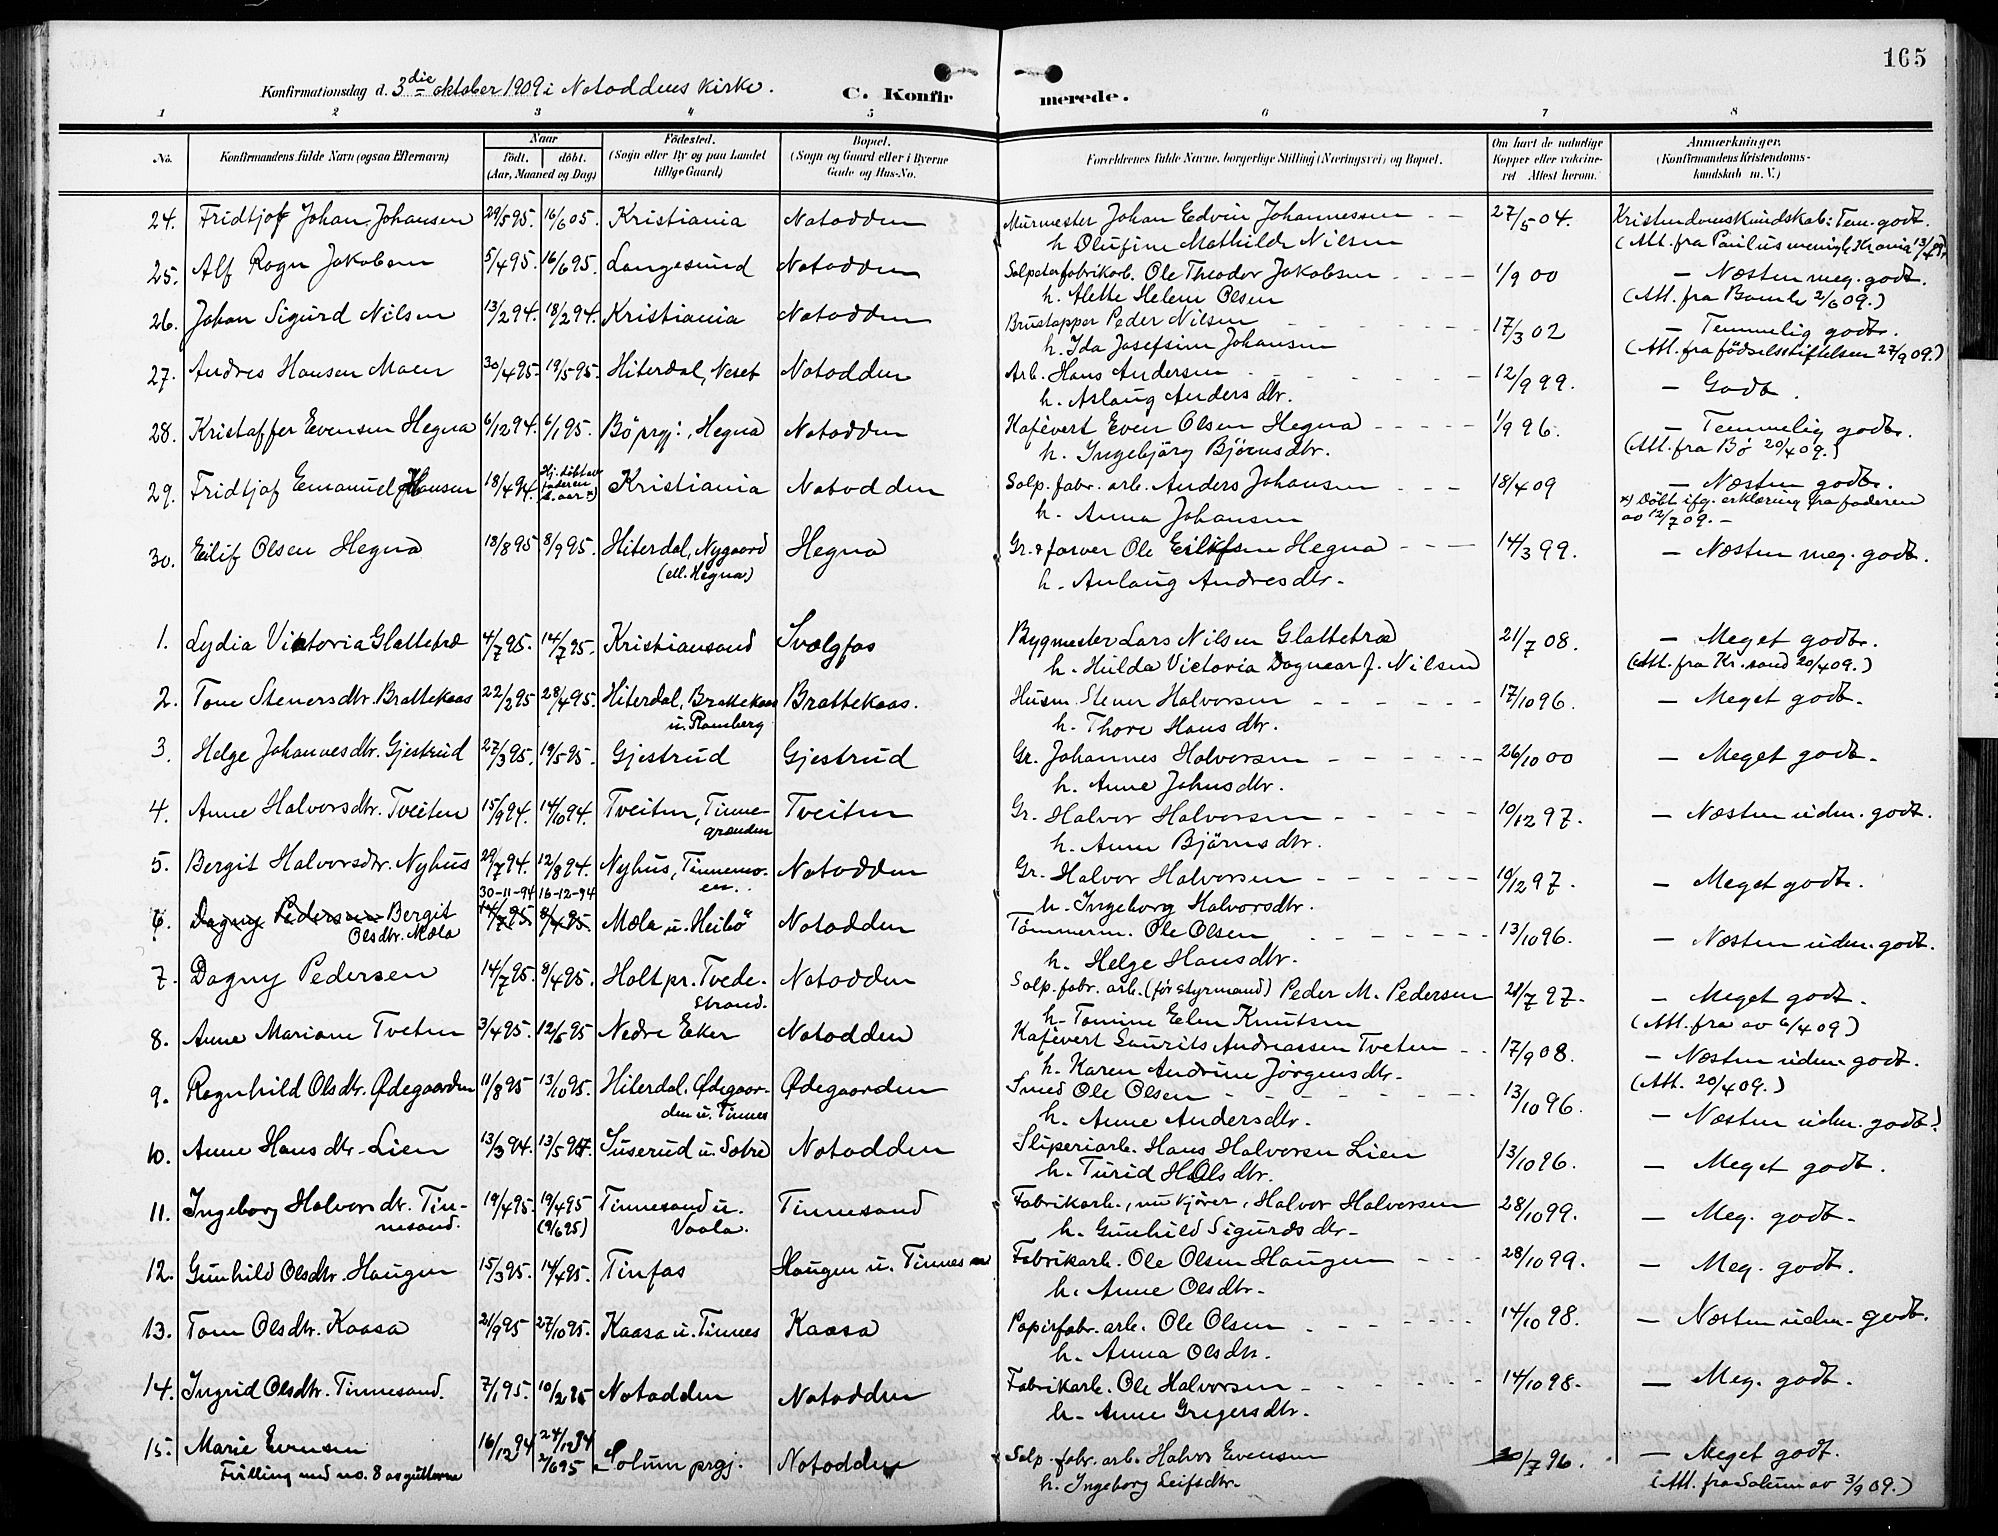 165
Konfirmationsdag d. 3die oktober 1909 i Notoddens kirke. C. Konfirmerede.
1 2 3 4 5 6 7 8
No. Konfirmandens fulde Navn (ogsaa Efternavn) Naar født. døbt. (Aar, Maaned og Dag) Fødested. (Sogn eller By og paa Landet tillige Gaard) Bopæl. (Sogn og Gaard eller i Byerne Gade og Hus-No. Forældrenes fulde Navne, borgerlige Stilling (Næringsvei) og Bopæl. Om havt de naturlige Kopper eller vaccineret Attest herom. Anmærkninger. (Konfirmandens Kristendomskundskab m. V.)
24. Fridtjof Johan Johansen 29/5 95. 16/6 05. Kristiania Notodden Murmester Johan Edvin Johannessen 27/5 04. Kristendomskundskab: Tem. godt.
h. Olufine Mathilde Nilsen (Att. fra Paulus menigh. Kr.ania 13/4 09.)
25. Alf Ragn Jakobsen 5/4 95. 16/6 95. Langesund Notodden Salpeterfabrikarb. Ole Theodor Jakobsen 1/9 00 – Næsten meg. godt.
h. Alette Helene Olsen (Att. fra Bamle 2/6 09.)
26. Johan Sigurd Nilsen 13/2 94. 18/2 94. Kristiania Notodden Brustapper Peder Nilsen 17/3 02 – Temmelig godt.
h. Ida Josefine Johansen (Att. fra fødselsstiftelsen 27/9 09.)
27. Andres Hansen Moen 30/4 95. 19/5 95. Hiterdal, Neset Notodden Arb. Hans Andersen 12/9 99. – Godt.
h. Aslaug Andersdtr.
28. Kristoffer Evensen Hegna 6/12 94. 6/1 95. Bö prgj., Hegna Notodden Kafévert Even Olsen Hegna 1/9 96. – Temmelig godt.
h. Ingebjörg Björnsdtr. (Att. fra Bø 20/4 09.)
29. Fridtjof Emanuel Hansen 18/4 94. Hj. døbt av faderen s. aar x) Kristiania Notodden Salp. fabr. arb. Anders Johansen 18/4 09 – Næsten godt.
h. Anna Johansen x) Døbt ifg. erklæring fra faderen av 12/7 09. –
30. Eilif Olsen Hegna 18/8 95 8/9 95. Hiterdal, Nygaard (ell. Hegna) Hegna Gr. & farver Ole Eilifsen Hegna 14/3 99. – Næsten meg. godt.
h. Anlaug Andresdtr.
1. Lydia Viktoria Glattetræ 4/7 95. 14/7 95. Kristiansand Svælgfos Bygmester Lars Nilsen Glattetræ 21/7 08. – Meget godt.
h. Hulda Victoria Dagmar f. Nilsen (Att. fra Kr.sand 20/4 09.)
2. Tone Stenersdtr. Brattekaas 22/2 95 28/4 95. Hiterdal, Brattekaas u. Ramberg Brattekaas. Husm. Stener Halvorsen 17/10 96. – Meget godt.
h. Thore Hansdtr.
3. Helge Johannesdtr. Gjestrud 27/3 95. 19/5 95. Gjestrud Gjestrud Gr. Johannes Halvorsen 26/10 00 – Meget godt.
h. Anne Johnsdtr.
4. Anne Halvorsdtr. Tveiten 15/9 94. 14/10 94. Tveiten, Tinnegrenden Tveiten Gr. Halvor Halvorsen 10/12 97. – Næsten uden. godt.
h. Anne Björnsdtr.
5. Bergit Halvorsdtr. Nyhus 29/7 94. 12/8 94. Nyhus, Tinnemoen. Notodden Gr. Halvor Halvorsen 10/12 97. – Meget godt.
h. Ingeborg Halvorsdtr.
30-11-94 16-12-94
6. Dagny Pedersen Bergit Olsdtr. Mæla 14/7 95 8/4 95. Mæla u. Heibö Notodden Tømmerm. Ole Olsen 13/10 96. – Næsten uden. godt.
h. Helge Hansdtr.
7. Dagny Pedersen 14/7 95. 8/4 95. Holt pr. Tvedestrand. Notodden Salp. fabr. arb. (før styrmand) Peder M. Pedersen 21/7 97. – Meget godt.
h. Tomine Elen Knutsen (Att. fra av 6/4 09)
8. Anne Mariane Tveten 3/4 95. 12/5 95 Nedre Eker Notodden Kafévert Laurits Andreassen Tveten 17/9 08. – Næsten uden. godt.
h. Karen Andrine Jørgensdtr. (Att. 20/4 09.)
9. Ragnhild Olsdtr. Ødegaarden 11/8 95 13/10 95. Hiterdal, Ødegaarden u. Tinnes Ødegaarden Smed Ole Olsen 13/10 96. – Næsten uden. godt!
h. Anne Andersdtr.
10. Anne Hansdtr. Lien 13/3 94. 13/5 94. Suserud u. Sætre Notodden Sliperiarb. Hans Halvorsen Lien 13/10 96. – Meget godt.
h. Turid Olsdtr.
11. Ingeborg Halvorsdtr. Tinnesand. 19/4 95. 19/4 95 (9/6 95) Tinnesand u. Vaala. Tinnesand Fabrikarb., nu kjører, Halvor Halvorsen 28/10 99. – Meg. godt.
h. Gunhild Sigurdsdtr.
12. Gunhild Olsdtr. Haugen 15/3 95. 14/4 95. Tinfos Haugen u. Tinnes Fabrikarb. Ole Olsen Haugen 28/10 99. – Meg. godt.
h. Anne Olsdtr.
13. Tone Olsdtr. Kaasa 21/9 95 27/10 95. Kaasa u. Tinnes Kaasa Papirfabr. arb. Ole Olsen 14/10 98. – Næsten uden. godt.
h. Anna Olsdtr.
14. Ingrid Olsdtr. Tinnesand. 7/1 95. 10/2 95 Notodden Notodden Fabrikarb. Ole Halvorsen 14/10 98. – Meg. godt.
h. Anne Gregersdtr.
15. Marie Evensen 16/12 94 24/12 94 2/6 95 Solum prgj. Notodden Salp. fabr. arb. Halvor Evensen /7 96. – Meget godt.
Tvilling med no. 8 av gutterne h. Ingeborg Leifsdtr. (Att. fra Solum av 3/9 09.)